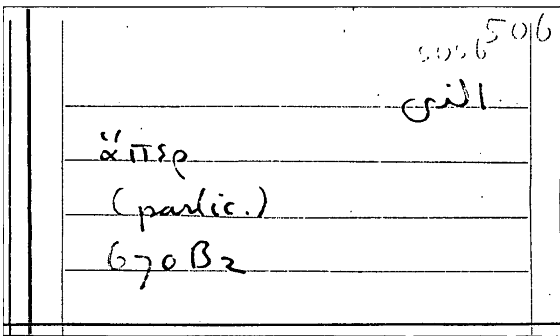 506
التى
ἅπερ
(partic.)
670 B2